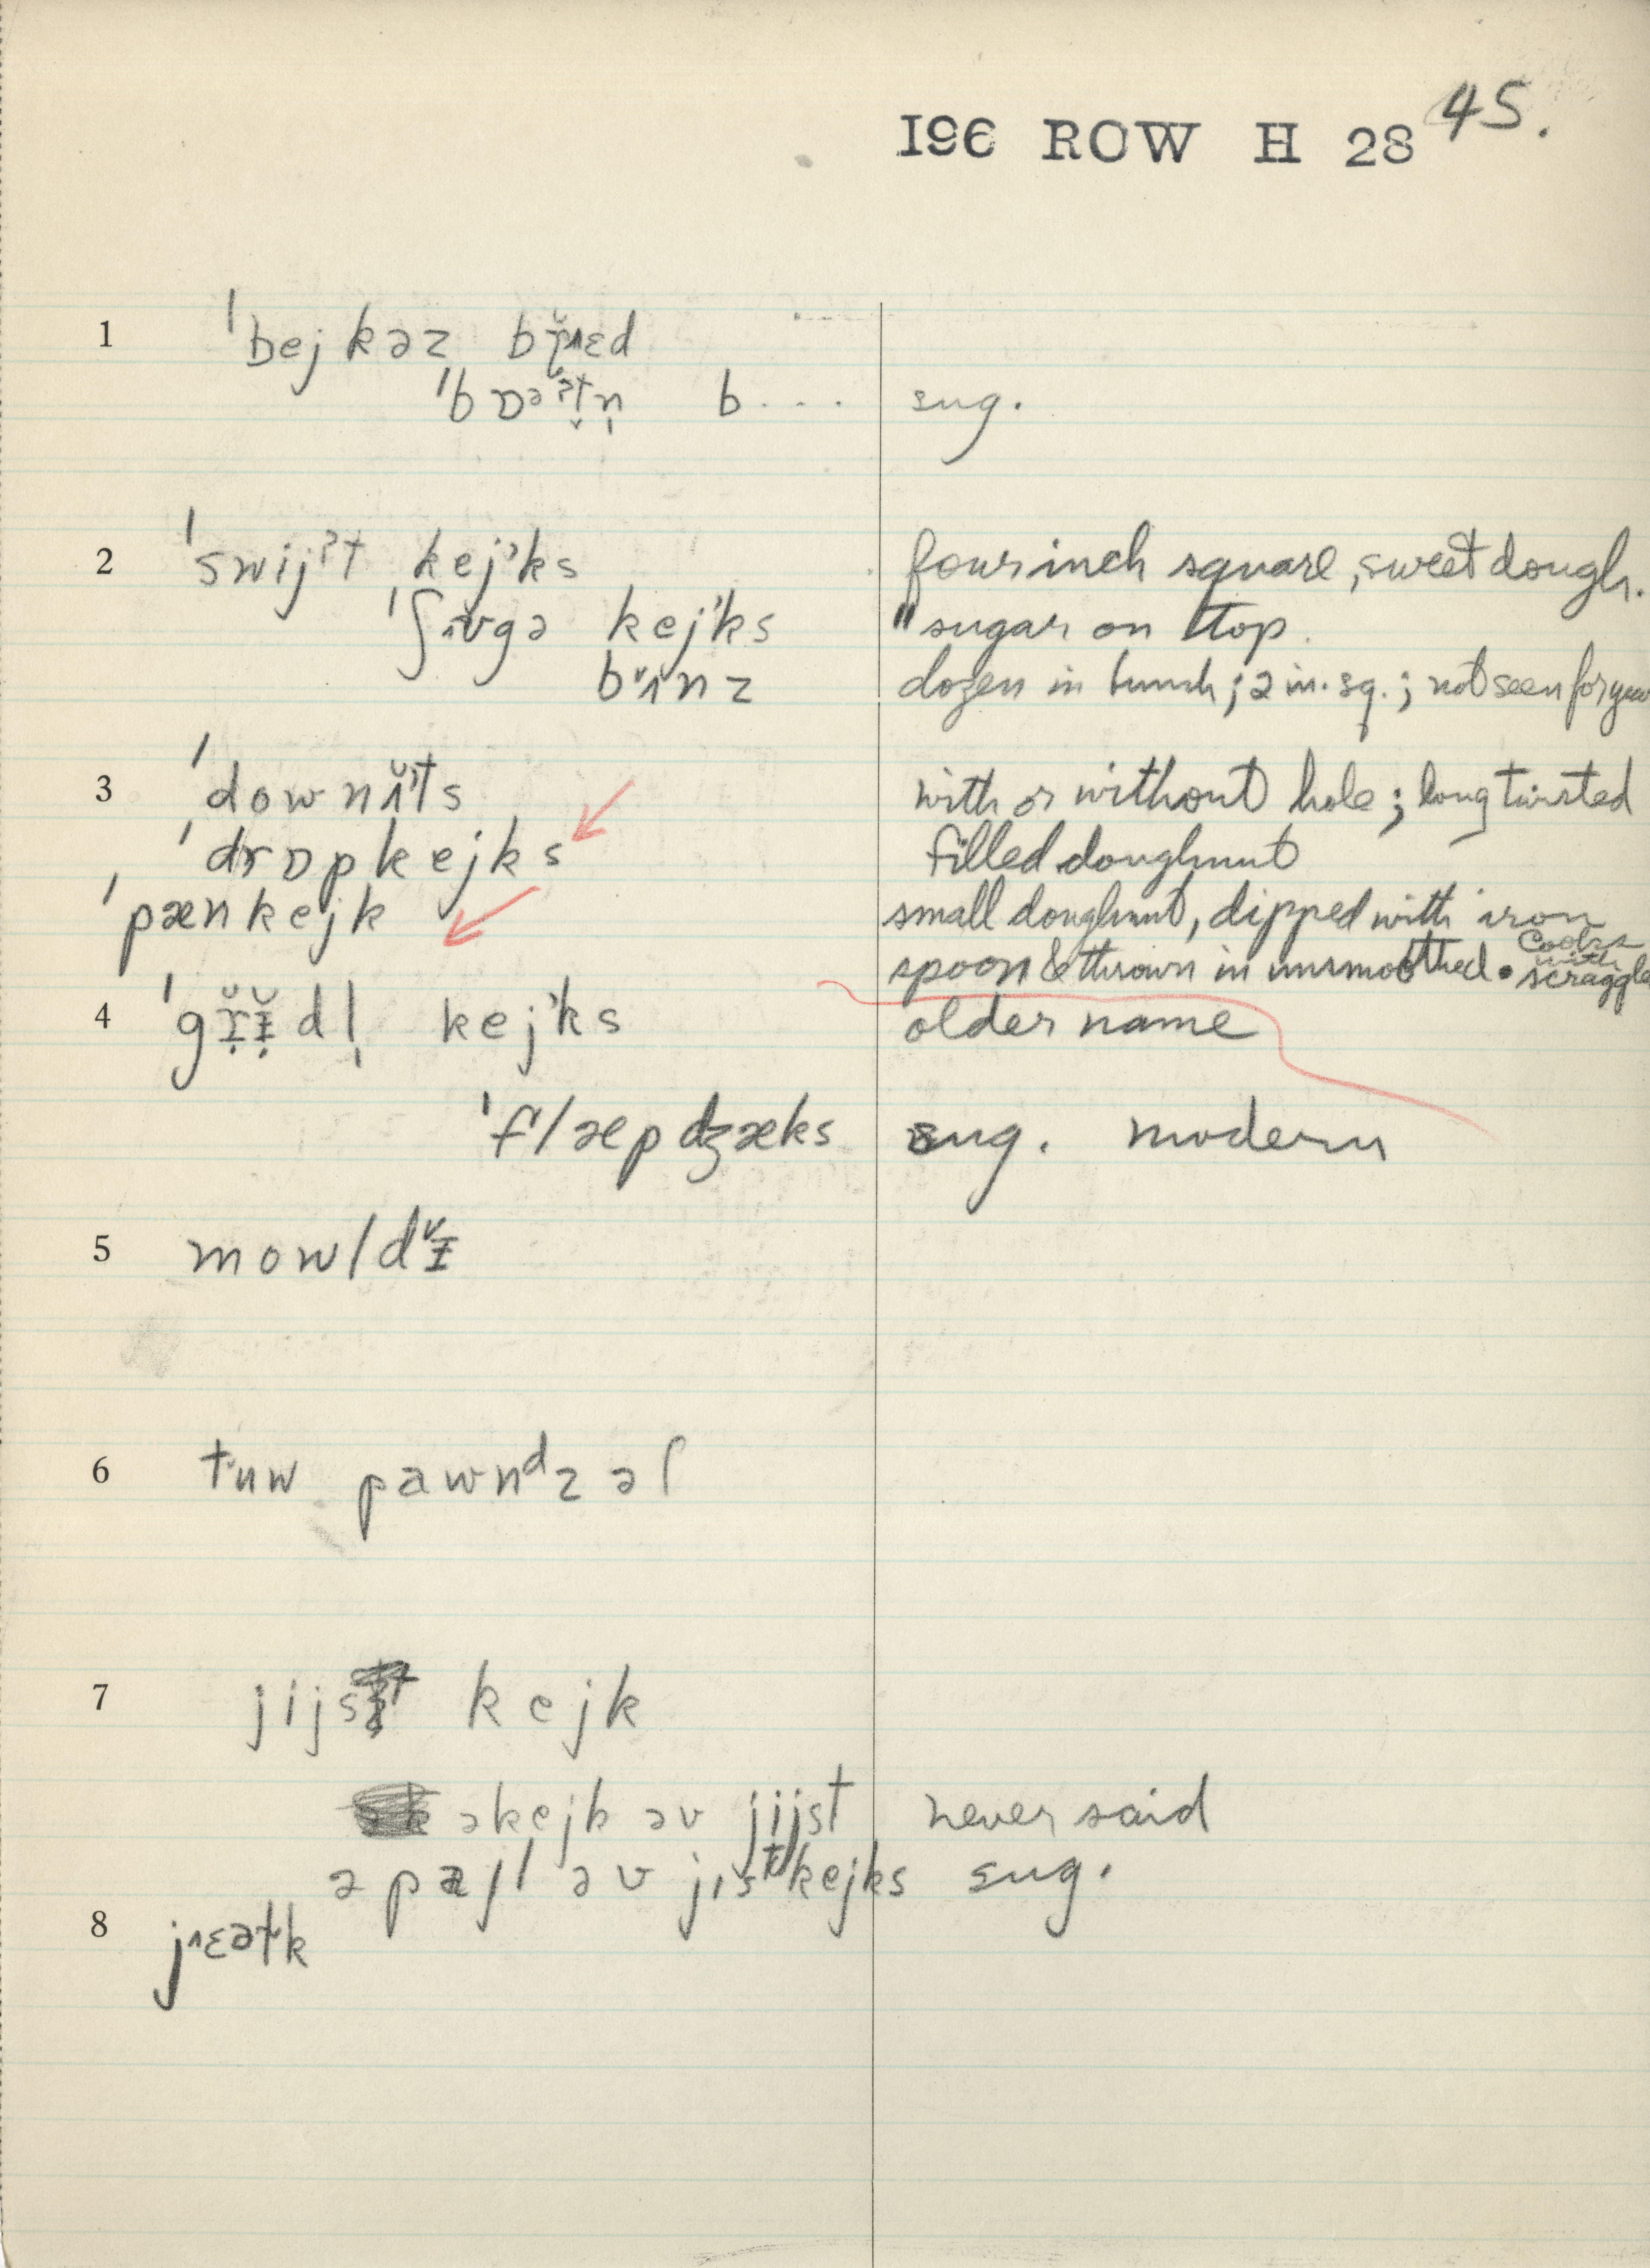 196 ROW H 28 45.
1 ˈbejkəz
ˈbɒəˀt̬n̩ b.... sug.
2 ˈswijˀt kejˀks four inch square, sweet dough.
kejˀks " sugar on top.
dozen in bunch; 2 in. sq.; not seen for
3 with or without hole; long twisted
ˈdrɒpkejks filled doughnut
ˈpænkejk small doughnut, dipped with iron
spoon & thrown in unsmoothed. Cooks with
4 kejˀks older name
ˈflæpdʒæks sug. modern
5
6 tʉw pawnᵈz əf
7 jijst kejk
əkejk əv jijst never said
ə pajl əv jistkejks sug.
8